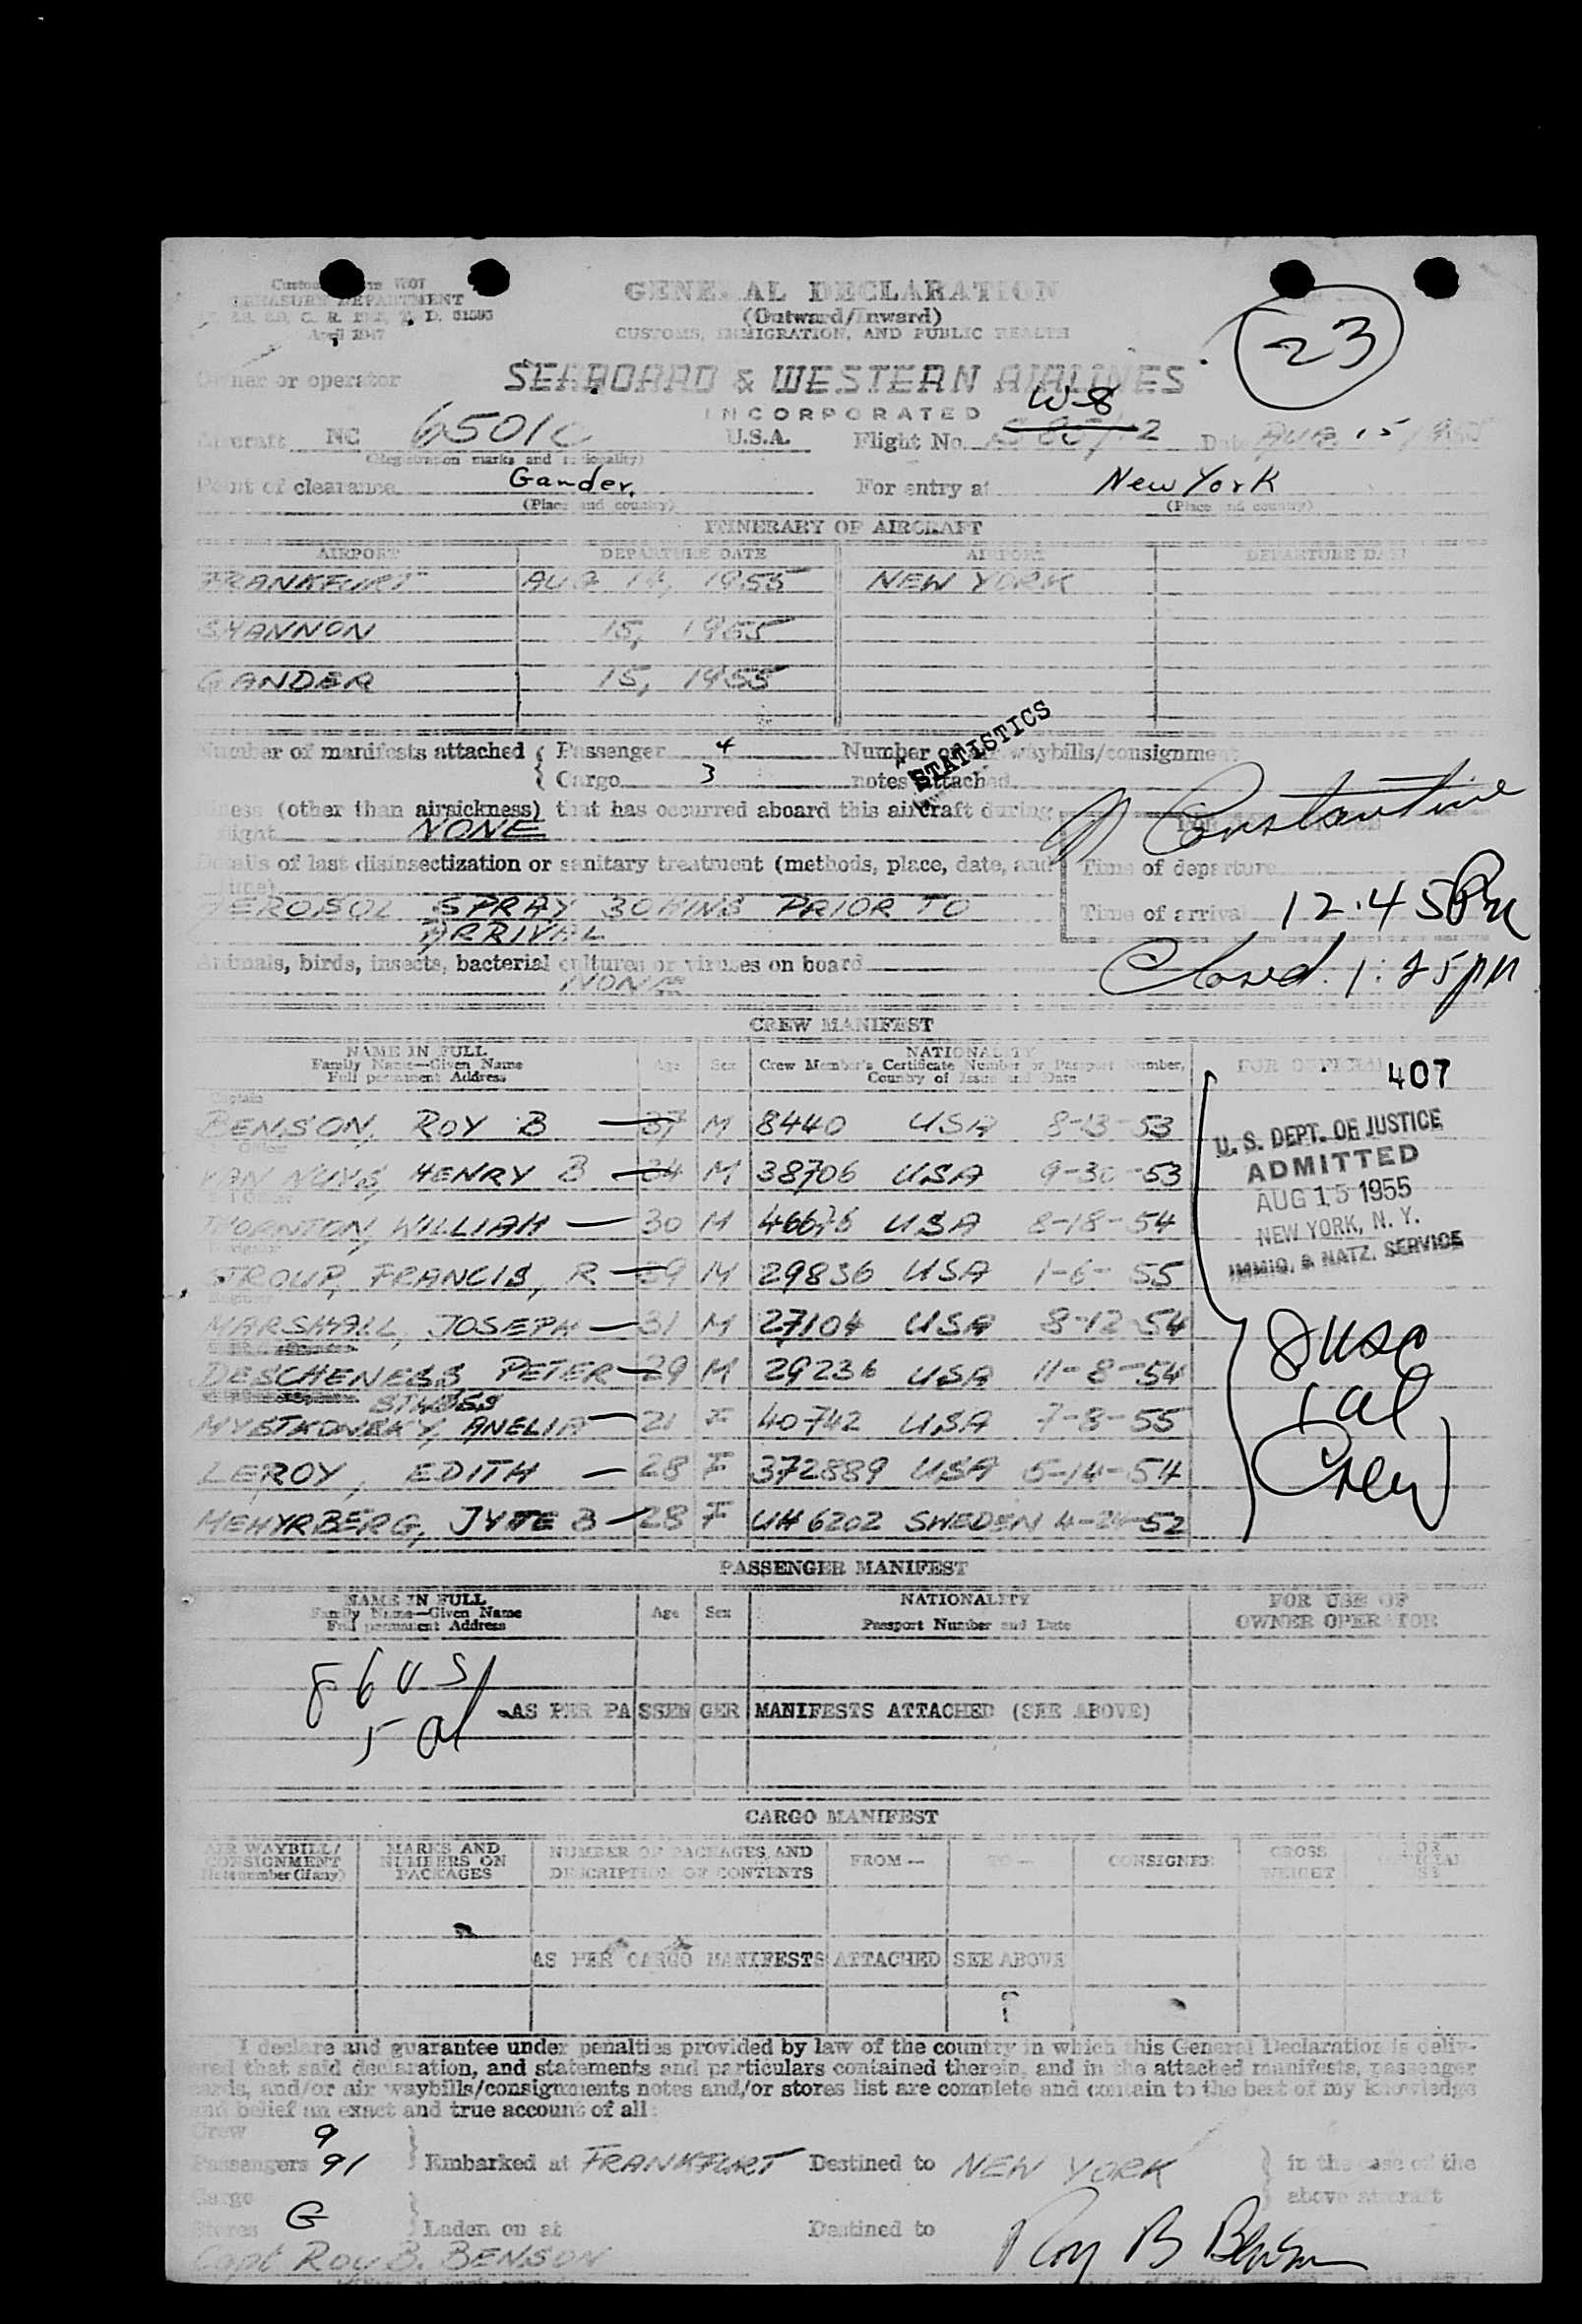 TREASURY DEPARTMENT
April 1947
GENERAL DECLARATION
(Outward/Inward)
CUSTOMS, IMMIGRATION, AND PUBLIC HEALTH
23
Owner or operator SEABOARD & WESTERN AIRLINES
INCORPORATED
W-8
Aircraft NC 6501C U.S.A. Flight No. Date AUG. 15 1955
(Registration marks and nationality)
Point of clearance Gander. For entry at New York
(Place and country) (Place and country)
ITINERARY OF AIRCRAFT
AIRPORT DEPARTURE DATE AIRPORT DEPARTURE DATE
FRANKFURT AUG 14, 1955 NEW YORK
SHANNON 15, 1955
GANDER 15, 1955
STATISTICS
Number of manifests attached { Passenger 4 Number of air waybills/consignment
Cargo 3 notes attached
Illness (other than airsickness) that has occurred aboard this aircraft during
flight NONE
Constantine
Details of last disinsectization or sanitary treatment (methods, place, date, and
time)
Time of departure
AEROSOL SPRAY 30 MINS PRIOR TO
ARRIVAL
Time of arrival 12.45 Pm
Animals, birds, insects, bacterial cultures or viruses on board
NONE
Closed. 1:25 pm
CREW MANIFEST
NAME IN FULL
Family Name—Given Name
Full permanent Address
Age Sex
NATIONALITY
Crew Member's Certificate Number or Passport Number,
Country of Issue and Date
FOR OFFICIAL
407
Captain
BENSON, ROY B — 37 M 8440 USA 8-13-53
VAN NUYS, HENRY B — 34 M 38706 USA 9-30-53
THORNTON, WILLIAM — 30 M 46676 USA 8-18-54
Navigator
STROUP, FRANCIS, R — 39 M 29836 USA 1-6-55
Engineer
MARSHALL, JOSEPH — 31 M 27104 USA 8-12-54
DESCHENESS PETER — 29 M 29236 USA 11-8-54
STWDSS
MYSTKOWSKY, ANELIA — 21 F 40742 USA 7-8-55
LEROY, EDITH — 28 F 372889 USA 5-14-54
MEHYRBERG, JYTTE B — 28 F UH 6202 SWEDEN 4-24-52
U. S. DEPT. OF JUSTICE
ADMITTED
AUG 15 1955
NEW YORK, N. Y.
IMMIG. & NATZ. SERVICE
8 USC
1 al
Crew
PASSENGER MANIFEST
NAME IN FULL
Family Name—Given Name
Full permanent Address
Age Sex
NATIONALITY
Passport Number and Date
FOR USE OF
OWNER OPERATOR
86 US
5 al
AS PER PASSENGER MANIFESTS ATTACHED (SEE ABOVE)
CARGO MANIFEST
AIR WAYBILL/
CONSIGNMENT
Note number (if any)
MARKS AND
NUMBERS ON
PACKAGES
NUMBER OF PACKAGES AND
DESCRIPTION OF CONTENTS
FROM—
TO—
CONSIGNEE
GROSS
WEIGHT
AS PER CARGO MANIFESTS ATTACHED SEE ABOVE
I declare and guarantee under penalties provided by law of the country in which this General Declaration is deliv-
ered that said declaration, and statements and particulars contained therein, and in the attached manifests, passenger
cards, and/or air waybills/consignments notes and/or stores list are complete and contain to the best of my knowledge
and belief an exact and true account of all:
Crew 9
Passengers 91 } Embarked at FRANKFURT Destined to NEW YORK } in the case of the
above aircraft
Cargo
Stores G } Laden on at Destined to
Capt ROY B. BENSON
Roy B Benson